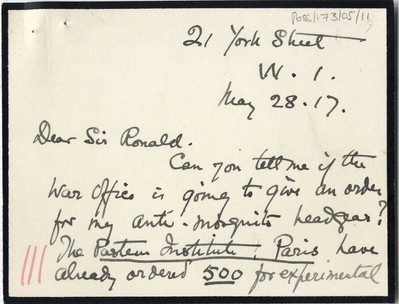 Ross/173/05/11
21 York Street
W. 1.
May 28. 17.
Dear Sir Ronald.
Can you tell me if the
War Office is going to give an order
for my anti-mosquito headgear?
The Pasteur Institute, Paris have
already ordered 500 for experimental